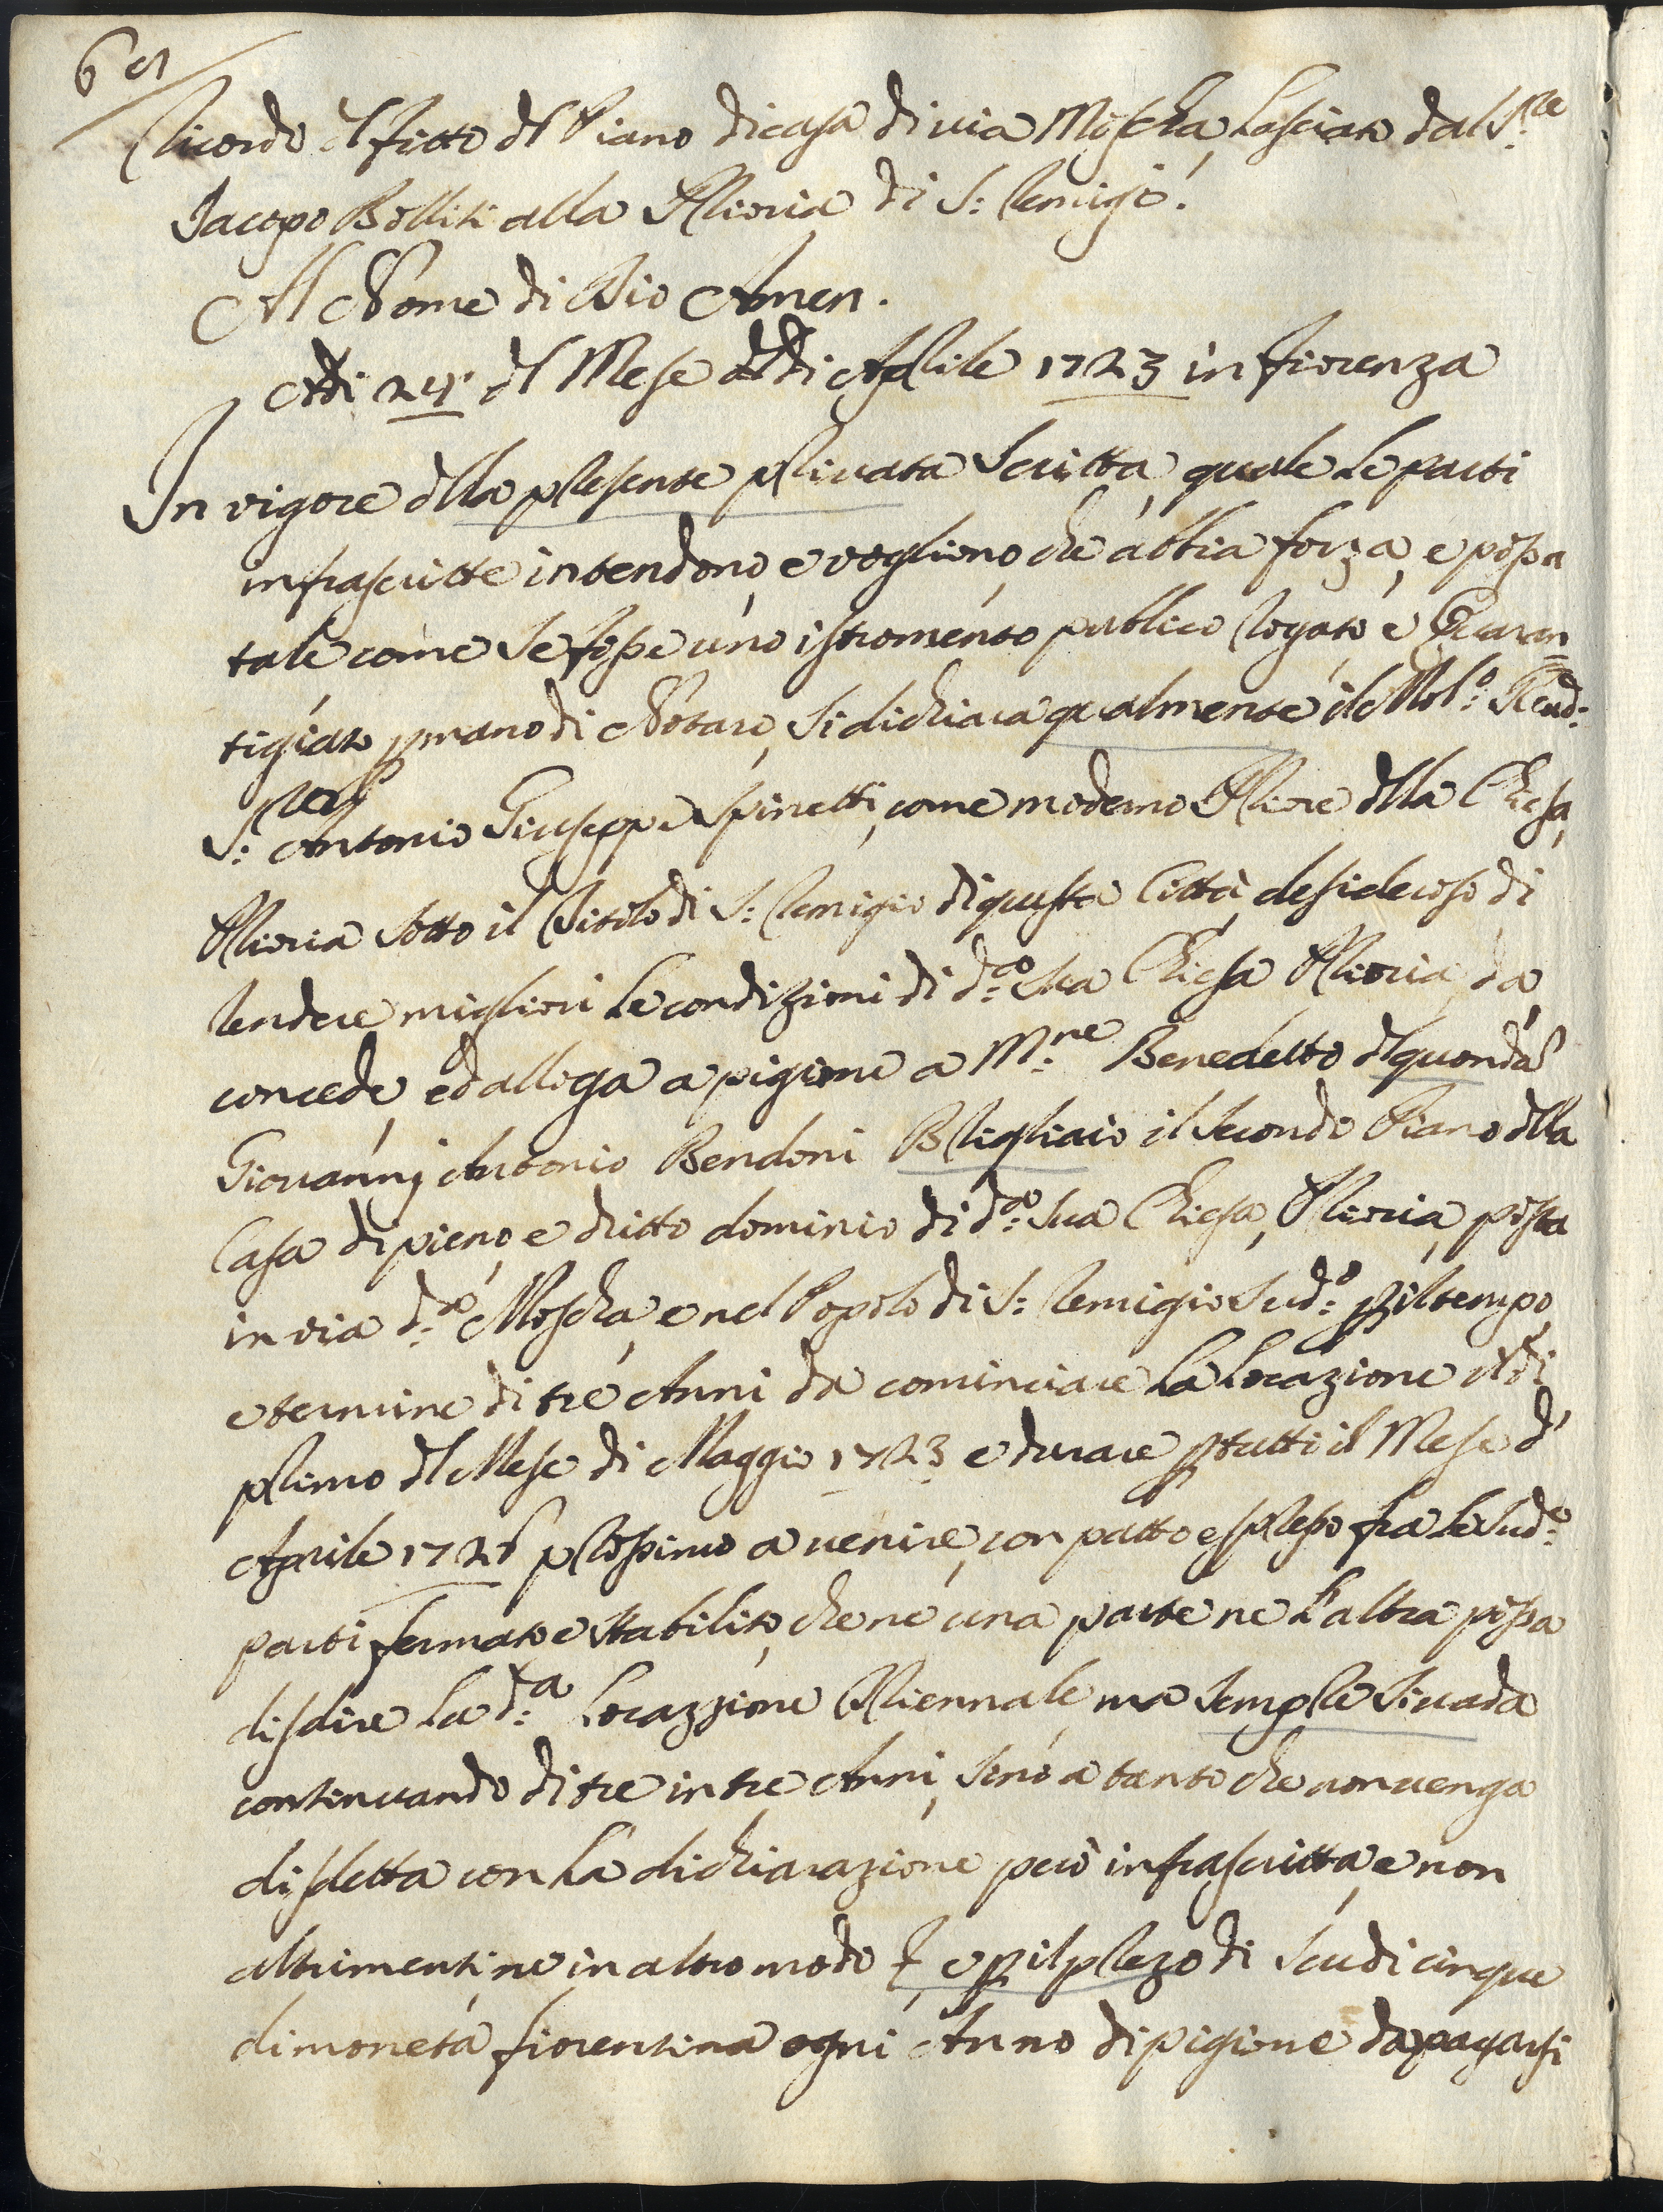 Ricordo d'l fitto d'l Piano di casa di via Moscha, lasciato dal S:re
Jacopo Bolliti alla Prioria di S: Remigio.
Al Nome di Dio Amen.
Adi 24 d'l Mese di Aprile 1723 in fiorenza
In vigore d'lla presente privata scritta, quale le parti
infrascritte intendono, e vogliono che abbia forza, e possa
tale come se fosse uno istromento publico rogato e Guaran=
tigiato p mano di Notaro, si dichiara qualmente il Mol:o Reud:o
S: Antonio Giuseppe Spinetti, come moderno Priore d'lla Chiesa,
Prioria sotto il titolo di S: Remigio di questa Città, desideroso di
rendere migliori le condizioni di d:a sua Chiesa Prioria, da
concede, ed alloga a pigione a M:re Benedetto d'l quondã
Giovannj Antonio Bendoni Brigliaio il secondo Piano d'lla
Casa di pieno, e dritto dominio di d:a sua Chiesa, Prioria, posta
in via d:a Moscha, e nel Popolo di S: Remigio sud:o p il tempo,
e termine di tre Anni da cominciare la locazione Adi
primo d'l Mese di Maggio 1723 e durare p tutti il Mese d'
Aprile 1726 prossimo a venire, con patto espresso fra le sud:e
parti fermato e stabilito, che ne una parte ne l'altra possa
disdire la d:a locazzione Triennale, ma sempre si vada
continuando di tre in tre Anni, sino a tanto che non venga
disdetta con la dichiarazione però infrascritta, e non
altrimenti, ne in altro modo e p il prezo di scudi cinque
di moneta fiorentina ogni Anno di pigione da pagarsi